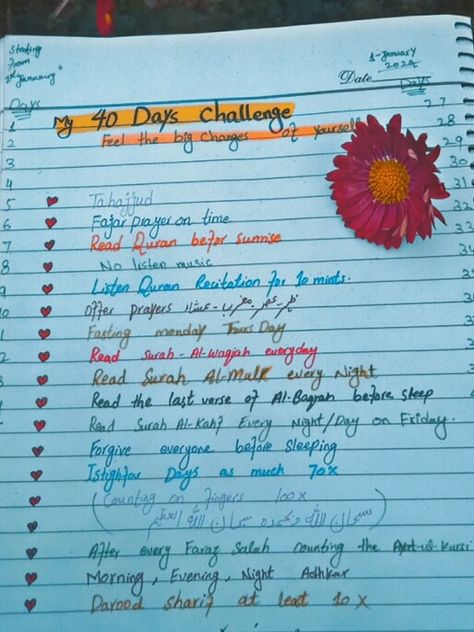 Starting
From
1st January
1-January
2024
Date
Days
Days
My 40 Days Challenge
Feel the big Changes of yourself
1
2
3
4
5
6
7
8
27
28
29
30
31
32
33
34
Tahajjud
Fajar prayer on time
Read Quran befor sunrise
No listen music
Listen Quran Recitation for 10 mints.
offer prayers ظہر-عصر-مغرب-عشاء
Fasting monday Thurs Day
Read Surah-Al-Waqiah everyday
Read Surah Al-Mulk every Night
Read the last verse of Al-Baqrah before sleep
Read Surah Al-Kahf Every Night/Day on Friday.
Forgive everyone before sleeping
Istighfar Days as much 70x
(Counting on fingers 100x
سبحان اللہ وبحمدہ سبحان اللہ العظیم)
After every Faraz Salah counting the Ayat-ul-Kursi
Morning, Evening, Night Adhkar
Darood sharif at least 10x